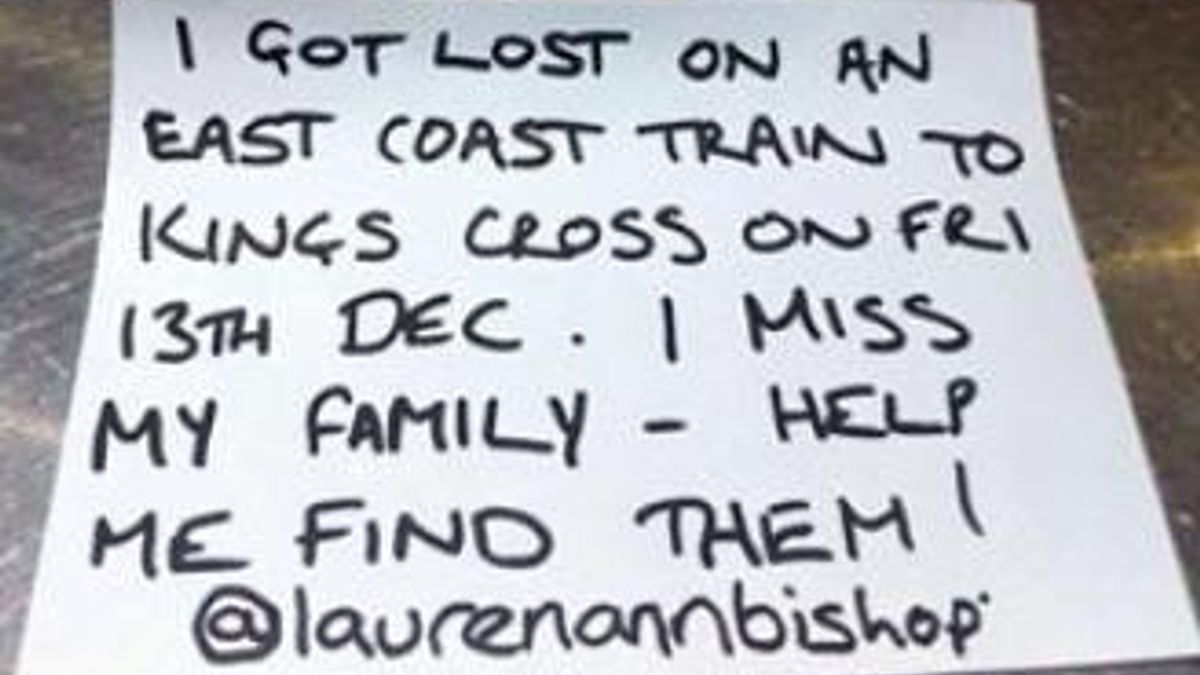 I GOT LOST ON AN
EAST COAST TRAIN TO
KINGS CROSS ON FRI
13TH DEC. I MISS
MY FAMILY - HELP
ME FIND THEM!
@laurenannbishop